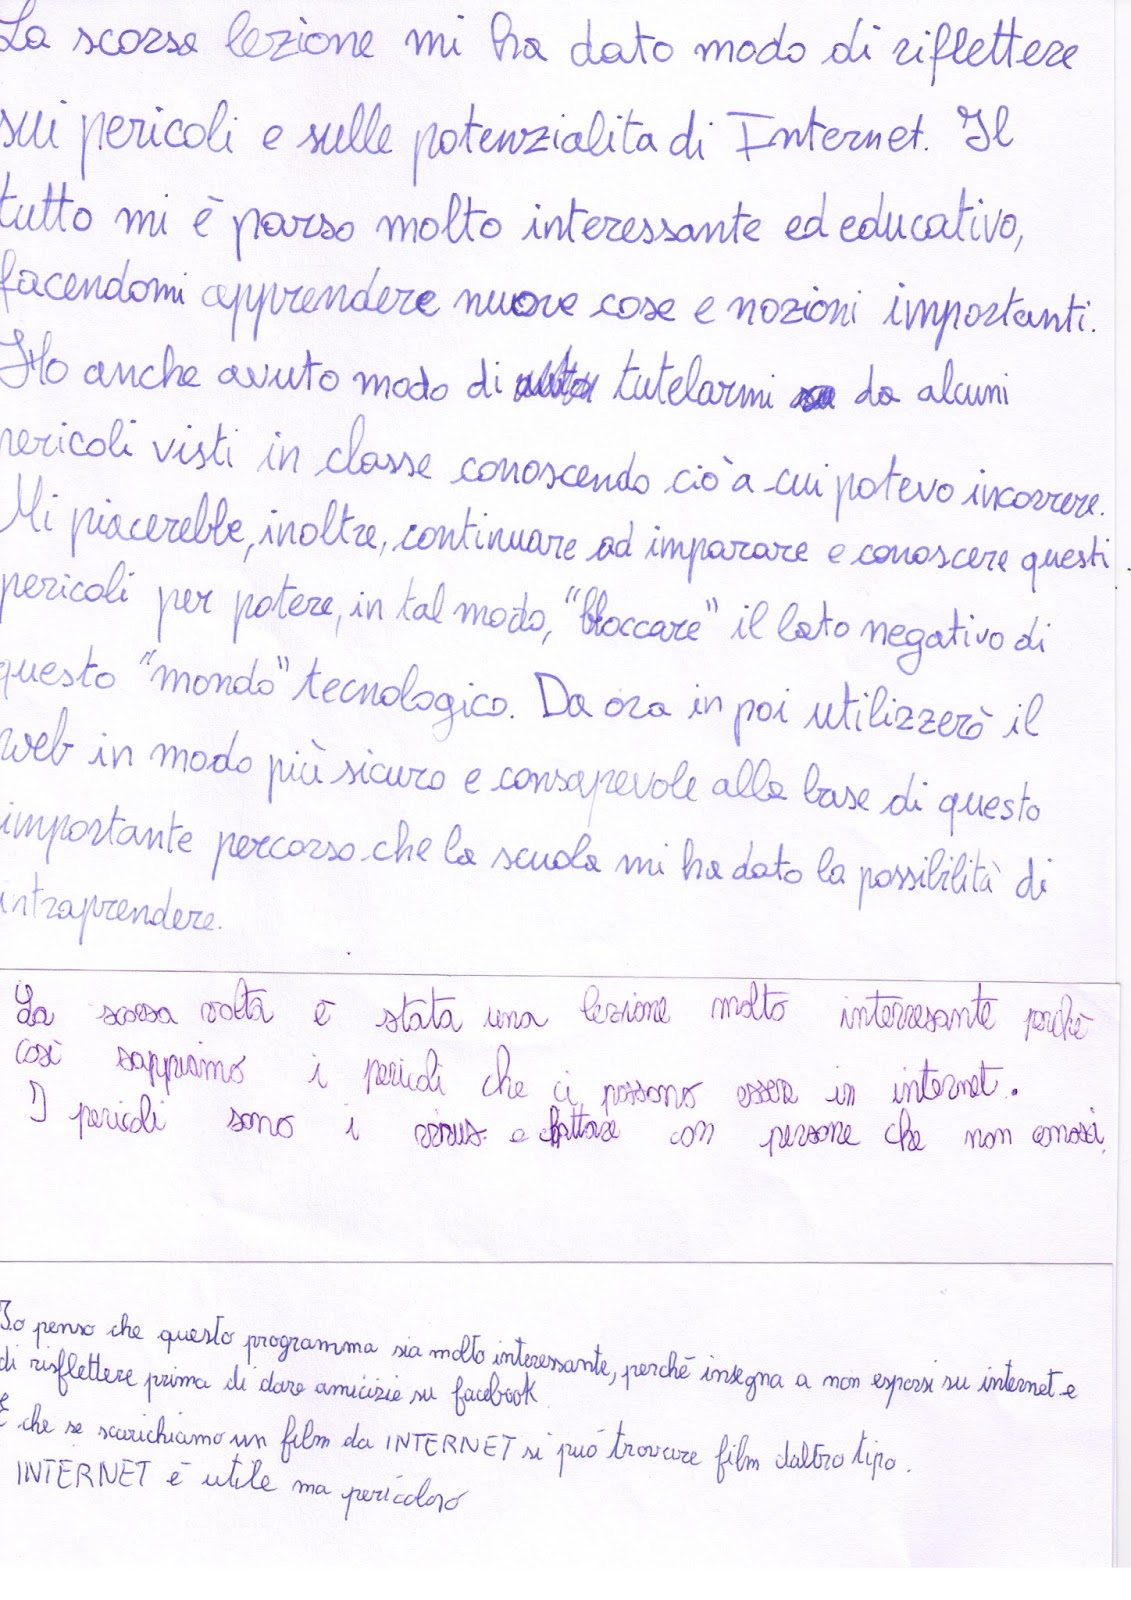 La scorsa lezione mi ha dato modo di riflettere
sui pericoli e sulle potenzialita di Internet. Il
tutto mi è parso molto interessante ed educativo,
facendomi apprendere nuove cose e nozioni importanti.
Ho anche avuto modo di tutelarmi da alcuni
pericoli visti in classe conoscendo ciò a cui potevo incorrere.
Mi piacerebbe, inoltre, continuare ad imparare e conoscere questi
pericoli per potere, in tal modo, "bloccare" il lato negativo di
questo "mondo" tecnologico. Da ora in poi utilizzerò il
web in modo più sicuro e consapevole alla base di questo
importante percorso che la scuola mi ha dato la possibilità di
intraprendere.
La scorsa volta è stata una lezione molto interresante perché
così sappiamo i pericoli che ci possono essere in internet.
I pericoli sono i virus e chattare con persone che non conosci.
Io penso che questo programma sia molto interessante, perché insegna a non esporsi su internet e
di risflettere prima di dare amicizie su facebook
E che se scarichiamo un film da INTERNET si può trovare film daltro tipo.
INTERNET è utile ma pericoloso